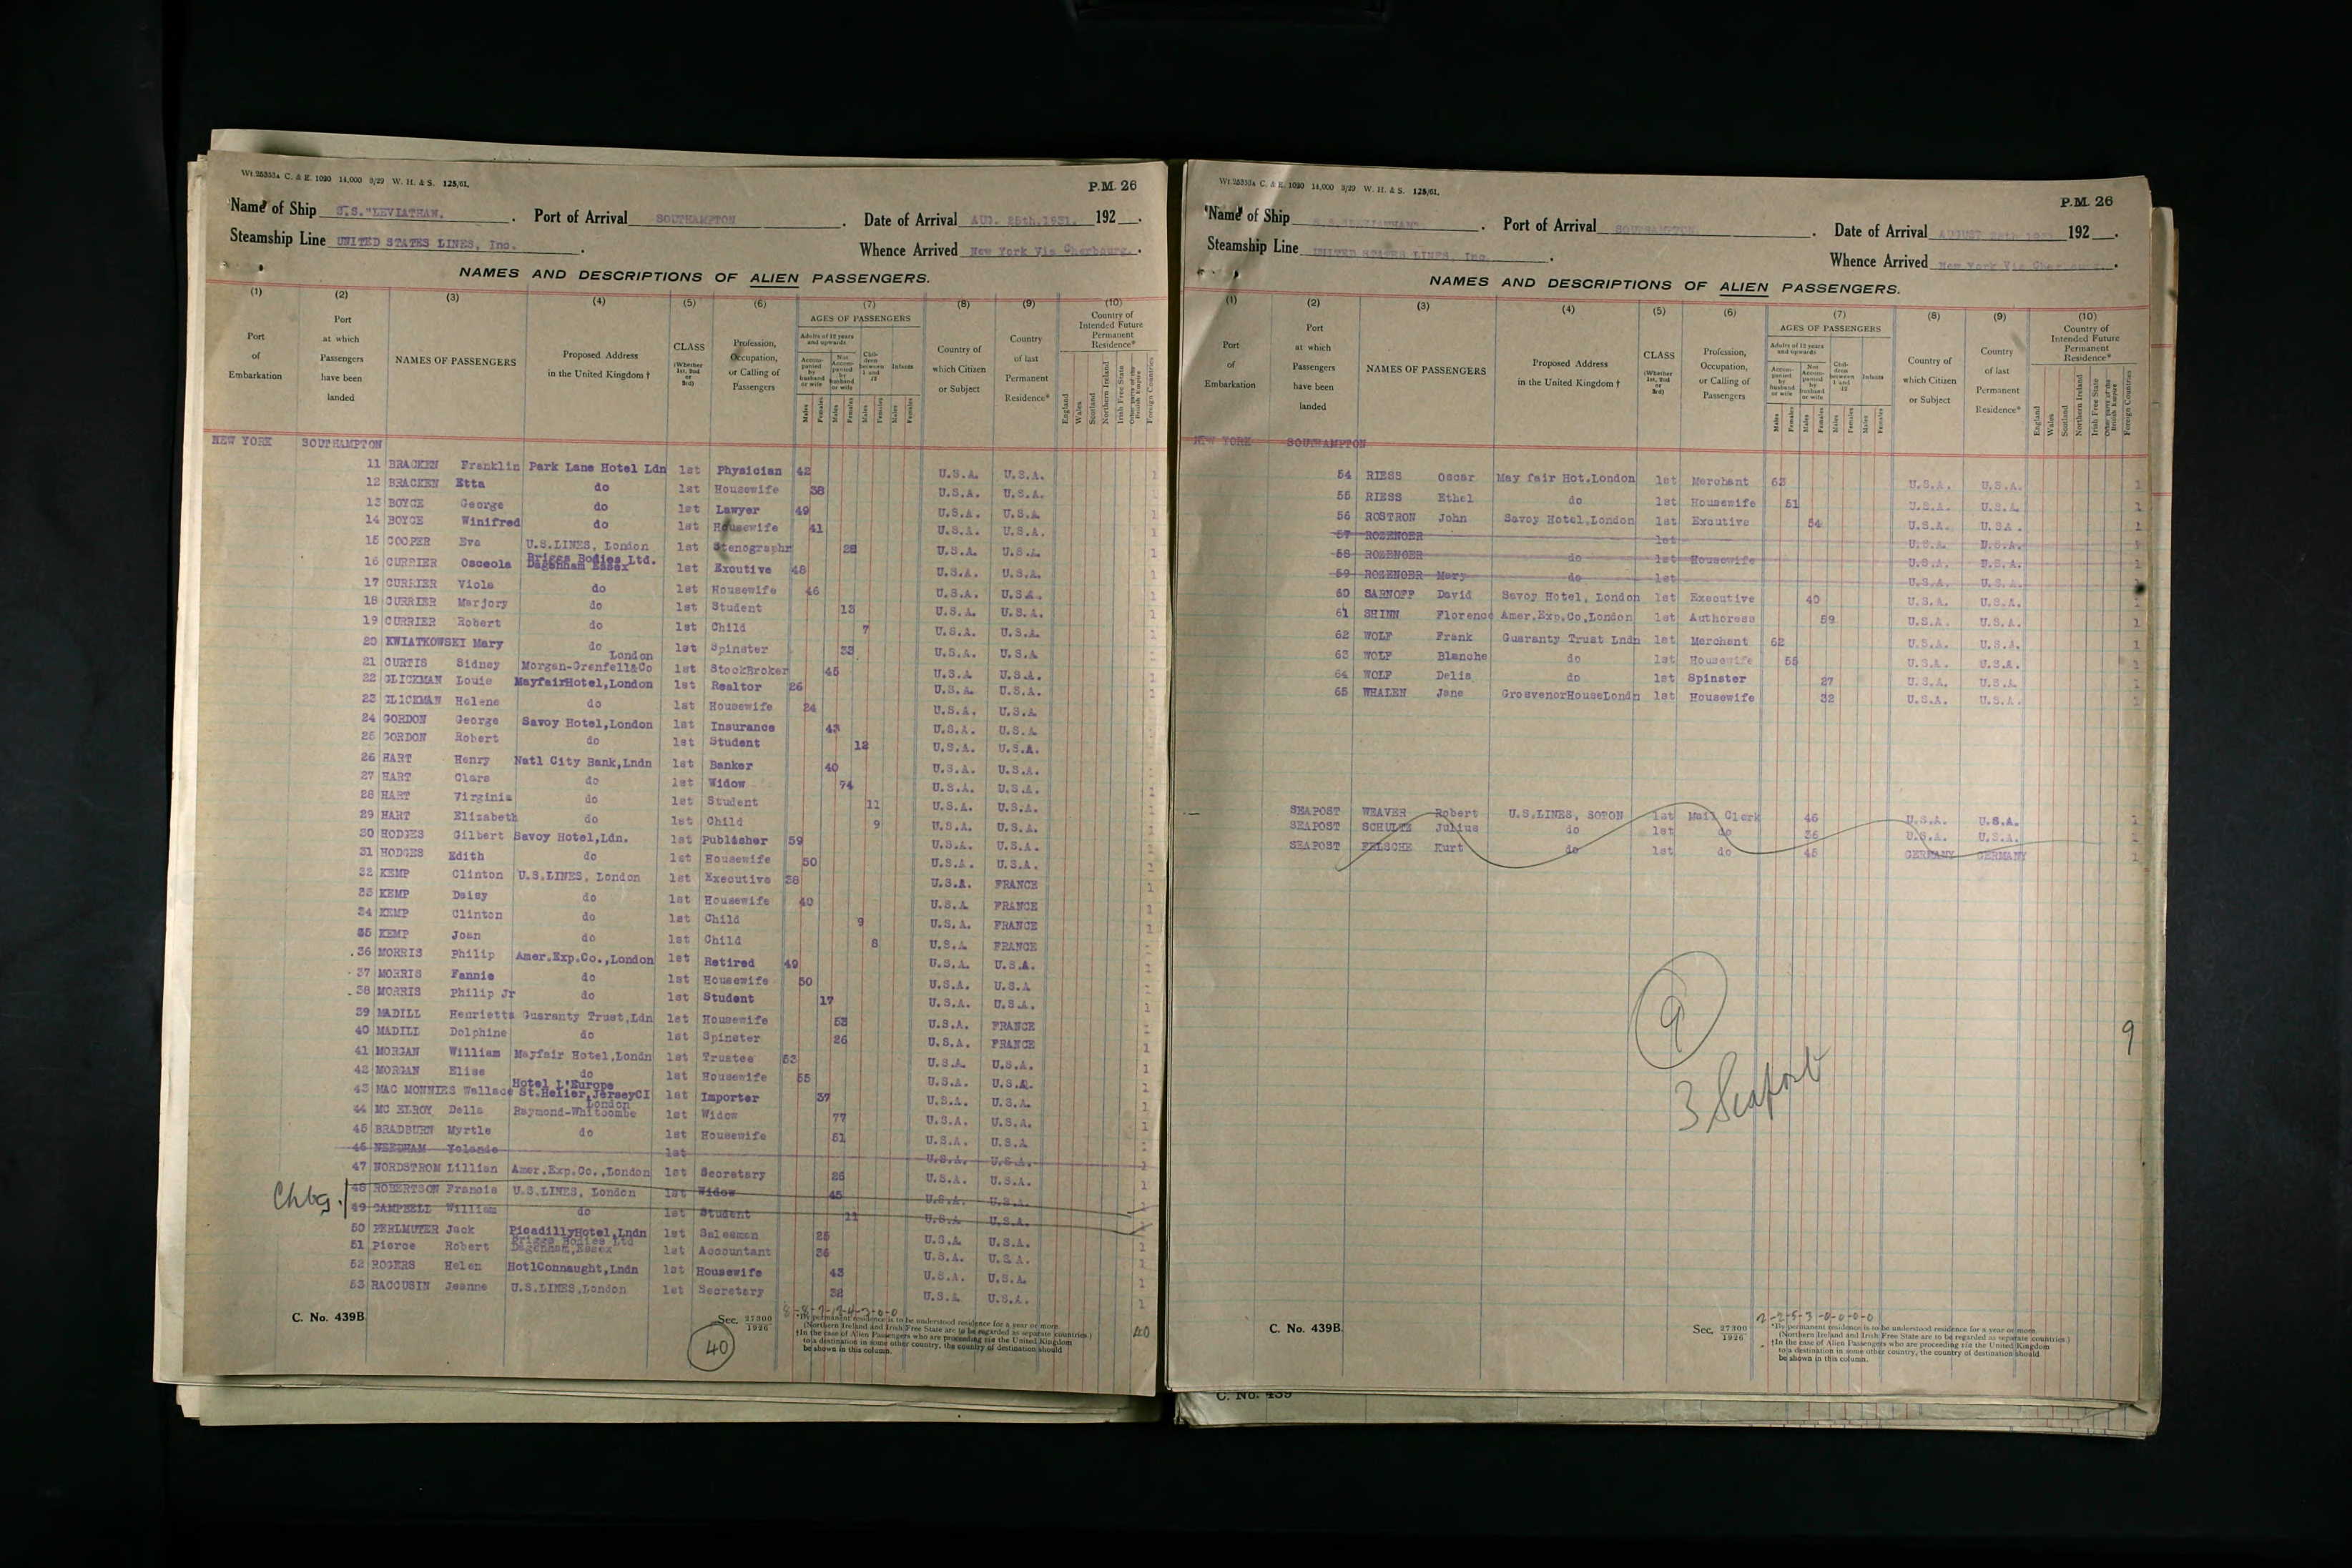 Wt.25353A C. & E. 1090 14,000 9/29 W. H. & S. 125/61.
P.M. 26
Name of Ship S.S. "LEVIATHAN. Port of Arrival SOUTHAMPTON Date of Arrival AUG. 25th.1931. 192
Steamship Line UNITED STATES LINES, Inc. Whence Arrived New York Via Cherbourg.
NAMES AND DESCRIPTIONS OF ALIEN PASSENGERS.
(1) (2) (3) (4) (5) (6) (7) (8) (9) (10)
Port of Embarkation
Port at which Passengers have been landed
NAMES OF PASSENGERS
Proposed Address in the United Kingdom †
CLASS (Whether 1st, 2nd or 3rd)
Profession, Occupation, or Calling of Passengers
AGES OF PASSENGERS
Adults of 12 years and upwards
Accompanied by husband or wife
Not Accompanied by husband or wife
Children between 1 and 12
Infants
Males Females Males Females Males Females Males Females
Country of which Citizen or Subject
Country of last Permanent Residence*
Country of Intended Future Permanent Residence*
England Wales Scotland Northern Ireland Irish Free State Other parts of the British Empire Foreign Countries
NEW YORK SOUTHAMPTON
11 BRACKEN Franklin Park Lane Hotel Ldn 1st Physician 42 U.S.A. U.S.A. 1
12 BRACKEN Etta do 1st Housewife 38 U.S.A. U.S.A. 1
13 BOYCE George do 1st Lawyer 49 U.S.A. U.S.A 1
14 BOYCE Winifred do 1st Housewife 41 U.S.A. U.S.A. 1
15 COOPER Eva U.S.LINES, London 1st Stenographr 28 U.S.A. U.S.A 1
16 CURRIER Osceola Briggs Bodies Ltd. Dagenham Essex 1st Excutive 48 U.S.A. U.S.A. 1
17 CURRIER Viola do 1st Housewife 46 U.S.A. U.S.A. 1
18 CURRIER Marjory do 1st Student 13 U.S.A. U.S.A. 1
19 CURRIER Robert do 1st Child 7 U.S.A. U.S.A. 1
20 KWIATKOWSKI Mary do 1st Spinster 33 U.S.A. U.S.A 1
21 CURTIS Sidney Morgan-Grenfell&Co London 1st StockBroker 45 U.S.A U.S.A. 1
22 GLICKMAN Louis MayfairHotel,London 1st Realtor 26 U.S.A. U.S.A. 1
23 GLICKMAN Helene do 1st Housewife 24 U.S.A. U.S.A 1
24 GORDON George Savoy Hotel,London 1st Insurance 43 U.S.A. U.S.A 1
25 GORDON Robert do 1st Student 12 U.S.A. U.S.A. 1
26 HART Henry Natl City Bank,Lndn 1st Banker 40 U.S.A. U.S.A. 1
27 HART Clara do 1st Widow 74 U.S.A. U.S.A. 1
28 HART Virginia do 1st Student 11 U.S.A. U.S.A. 1
29 HART Elizabeth do 1st Child 9 U.S.A. U.S.A. 1
30 HODGES Gilbert Savoy Hotel,Ldn. 1st Publisher 59 U.S.A. U.S.A. 1
31 HODGES Edith do 1st Housewife 50 U.S.A. U.S.A. 1
32 KEMP Clinton U.S.LINES, London 1st Executive 38 U.S.A. FRANCE 1
33 KEMP Daisy do 1st Housewife 40 U.S.A FRANCE 1
34 KEMP Clinton do 1st Child 9 U.S.A. FRANCE 1
35 KEMP Joan do 1st Child 8 U.S.A FRANCE 1
36 MORRIS Philip Amer.Exp.Co.,London 1st Retired 49 U.S.A. U.S.A. 1
37 MORRIS Fannie do 1st Housewife 50 U.S.A. U.S.A 1
38 MORRIS Philip Jr do 1st Student 17 U.S.A. U.S.A. 1
39 MADILL Henrietta Guaranty Trust,Ldn 1st Housewife 53 U.S.A. FRANCE 1
40 MADILL Dolphine do 1st Spinster 26 U.S.A. FRANCE 1
41 MORGAN William Mayfair Hotel,Londn 1st Trustee 53 U.S.A U.S.A. 1
42 MORGAN Elise do 1st Housewife 55 U.S.A. U.S.A. 1
43 MAC MONNIES Wallace Hotel L'Europe St.Helier,JerseyCI 1st Importer 37 U.S.A. U.S.A 1
44 MC ELROY Della Raymond-Whitcombe London 1st Widow 77 U.S.A. U.S.A. 1
45 BRADBURN Myrtle do 1st Housewife 51 U.S.A. U.S.A 1
46 NEEDHAM Yolande 1st U.S.A. U.S.A. 1
47 NORDSTROM Lillian Amer.Exp.Co.,London 1st Secretary 26 U.S.A. U.S.A. 1
Chbg. 48 ROBERTSON Francis U.S.LINES, London 1st Widow 45 U.S.A. U.S.A. 1
49 CAMPBELL William do 1st Student 11 U.S.A U.S.A. 1
50 PERLMUTER Jack PicadillyHotel,Lndn 1st Salesman 25 U.S.A U.S.A. 1
51 Pierce Robert Briggs Bodies Ltd Dagenham,Essex 1st Accountant 36 U.S.A. U.S.A. 1
52 ROGERS Helen HotlConnaught,Lndn 1st Housewife 43 U.S.A. U.S.A 1
53 RACCUSIN Jeanne U.S.LINES,London 1st Secretary 32 U.S.A U.S.A. 1
C. No. 439B
Sec. 27300/1926
40
40
*By permanent residence is to be understood residence for a year or more.
(Northern Ireland and Irish Free State are to be regarded as separate countries.)
†In the case of Alien Passengers who are proceeding via the United Kingdom
to a destination in some other country, the country of destination should
be shown in this column.
Wt.25353A C. & E. 1090 14,000 9/29 W. H. & S. 125/61.
P.M. 26
Name of Ship S.S."LEVIATHAN" Port of Arrival SOUTHAMPTON. Date of Arrival AUGUST 25th 1931 192
Steamship Line UNITED STATES LINES, Inc. Whence Arrived New York Via Cherbourg.
NAMES AND DESCRIPTIONS OF ALIEN PASSENGERS.
(1) (2) (3) (4) (5) (6) (7) (8) (9) (10)
Port of Embarkation
Port at which Passengers have been landed
NAMES OF PASSENGERS
Proposed Address in the United Kingdom †
CLASS (Whether 1st, 2nd or 3rd)
Profession, Occupation, or Calling of Passengers
AGES OF PASSENGERS
Adults of 12 years and upwards
Accompanied by husband or wife
Not Accompanied by husband or wife
Children between 1 and 12
Infants
Males Females Males Females Males Females Males Females
Country of which Citizen or Subject
Country of last Permanent Residence*
Country of Intended Future Permanent Residence*
England Wales Scotland Northern Ireland Irish Free State Other parts of the British Empire Foreign Countries
NEW YORK SOUTHAMPTON
54 RIESS Oscar May fair Hot.London 1st Merchant 63 U.S.A. U.S.A. 1
55 RIESS Ethel do 1st Housewife 51 U.S.A. U.S.A 1
56 ROSTRON John Savoy Hotel,London 1st Excutive 54 U.S.A. U.S.A. 1
57 ROZENOER 1st U.S.A. U.S.A.
58 ROZENOER do 1st Housewife U.S.A. U.S.A. 1
59 ROZENOER Mary do 1st U.S.A. U.S.A. 1
60 SARNOFF David Savoy Hotel, London 1st Executive 40 U.S.A. U.S.A. 1
61 SHINN Florence Amer.Exp.Co,London 1st Authoress 59 U.S.A. U.S.A. 1
62 WOLF Frank Guaranty Trust Lndn 1st Merchant 62 U.S.A. U.S.A. 1
63 WOLF Blanche do 1st Housewife 55 U.S.A. U.S.A. 1
64 WOLF Delia do 1st Spinster 27 U.S.A. U.S.A. 1
65 WHALEN Jane GrosvenorHouseLondn 1st Housewife 32 U.S.A. U.S.A. 1
SEAPOST WEAVER Robert U.S.LINES, SOTON 1st Mail Clerk 46 U.S.A. U.S.A. 1
SEAPOST SCHULTE Julius do 1st do 36 U.S.A. U.S.A. 1
SEAPOST FELSCHE Kurt do 1st do 45 GERMANY GERMANY 1
9
9
3 Seapost
C. No. 439B
Sec. 27300/1926
2-2-5-3-0-0-0-0
*By permanent residence is to be understood residence for a year or more.
(Northern Ireland and Irish Free State are to be regarded as separate countries.)
†In the case of Alien Passengers who are proceeding via the United Kingdom
to a destination in some other country, the country of destination should
be shown in this column.
C. No. 439